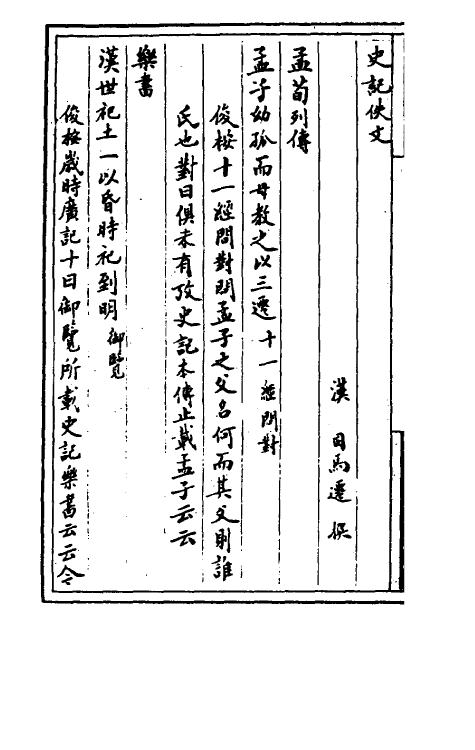 史記佚文
漢　司馬遷　撰
孟荀列傳
孟子幼孤而母教之以三遷 十一經問對
俊按十一經問對問孟子之父名何而其父則誰
氏也對曰俱未有攷史記本傳止載孟子云云
樂書
漢世祀太一以昏時祀到明 御覽
俊按歲時廣記十日御覽所載史記樂書云云今